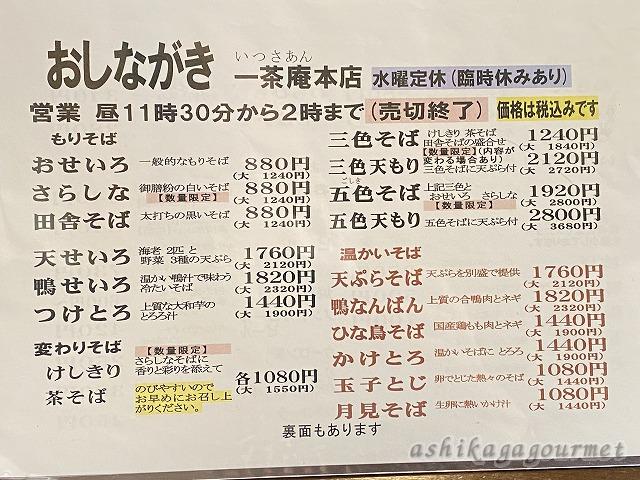 おしながき
いっさあん
一茶庵本店
水曜定休(臨時休みあり)
営業 昼11時30分から2時まで(売切終了)
価格は税込みです
もりそば
おせいろ 一般的なもりそば 880円
(大 1240円)
さらしな 御膳粉の白いそば 880円
【数量限定】 (大 1240円)
田舎そば 太打ちの黒いそば 880円
(大 1240円)
天せいろ 海老 2匹 と 1760円
野菜 3種の天ぷら (大 2120円)
鴨せいろ 温かい鴨汁で味わう 1820円
冷たいそば (大 2320円)
つけとろ 上質な大和芋の 1440円
とろろ汁 (大 1900円)
変わりそば 【数量限定】
さらしなそばに
けしきり 香りと彩りを添えて 各1080円
茶そば のびやすいので (大 1550円)
お早めにお召し上
がりください。
三色そば けしきり 茶そば 1240円
田舎そばの盛合せ (大 1840円)
【数量限定】(内容が
三色天もり 変わる場合あり) 2120円
(大 2720円)
ごしき
五色そば 上記三色と 1920円
おせいろ さらしな (大 2800円)
【数量限定】
五色天もり 五色そばに天ぷら付 2800円
(大 3680円)
温かいそば
天ぷらそば 天ぷらを別盛で提供 1760円
(大 2120円)
鴨なんばん 上質の合鴨肉とネギ 1820円
(大 2320円)
ひな鳥そば 国産鶏もも肉とネギ 1440円
(大 1900円)
かけとろ 温かいそばに とろろ 1440円
(大 1900円)
玉子とじ 卵でとじた熱々のそば 1080円
(大 1440円)
月見そば 生卵に熱いかけ汁 1080円
(大 1440円)
裏面もあります
ashikagagourmet